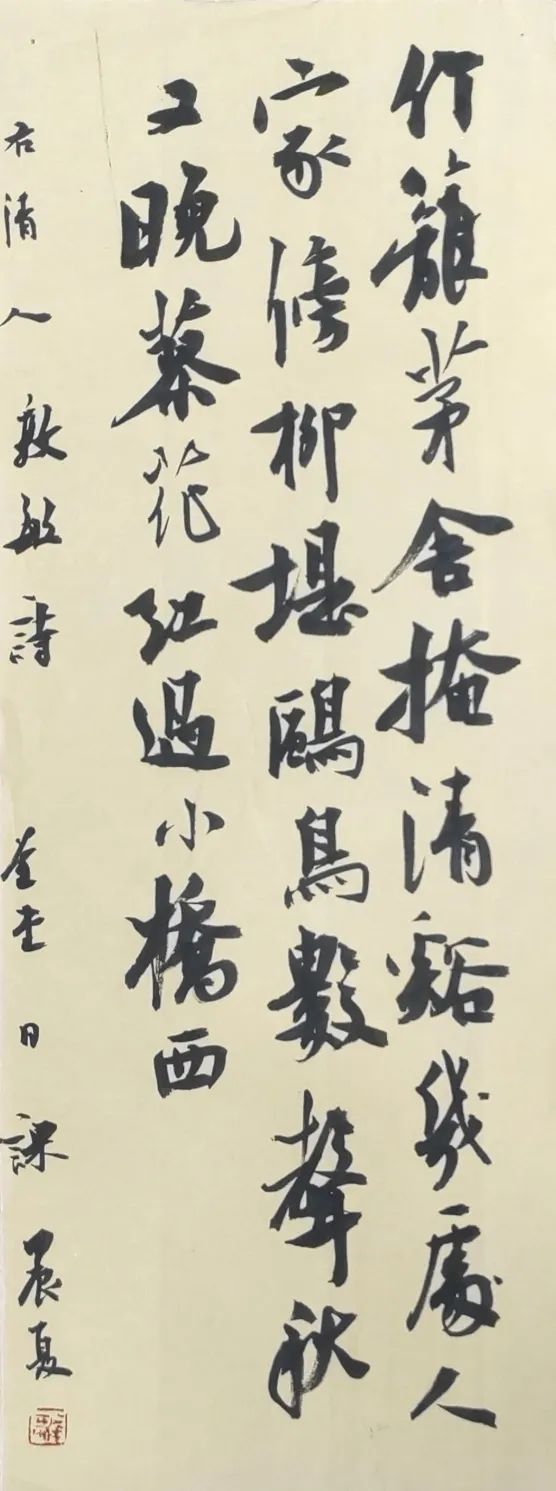 竹籬茅舍掩清谿幾處人
家傍柳堤鷗鳥數聲秋
晚蓼花紅過小橋西
右清人敦敏詩 日課 晨夏